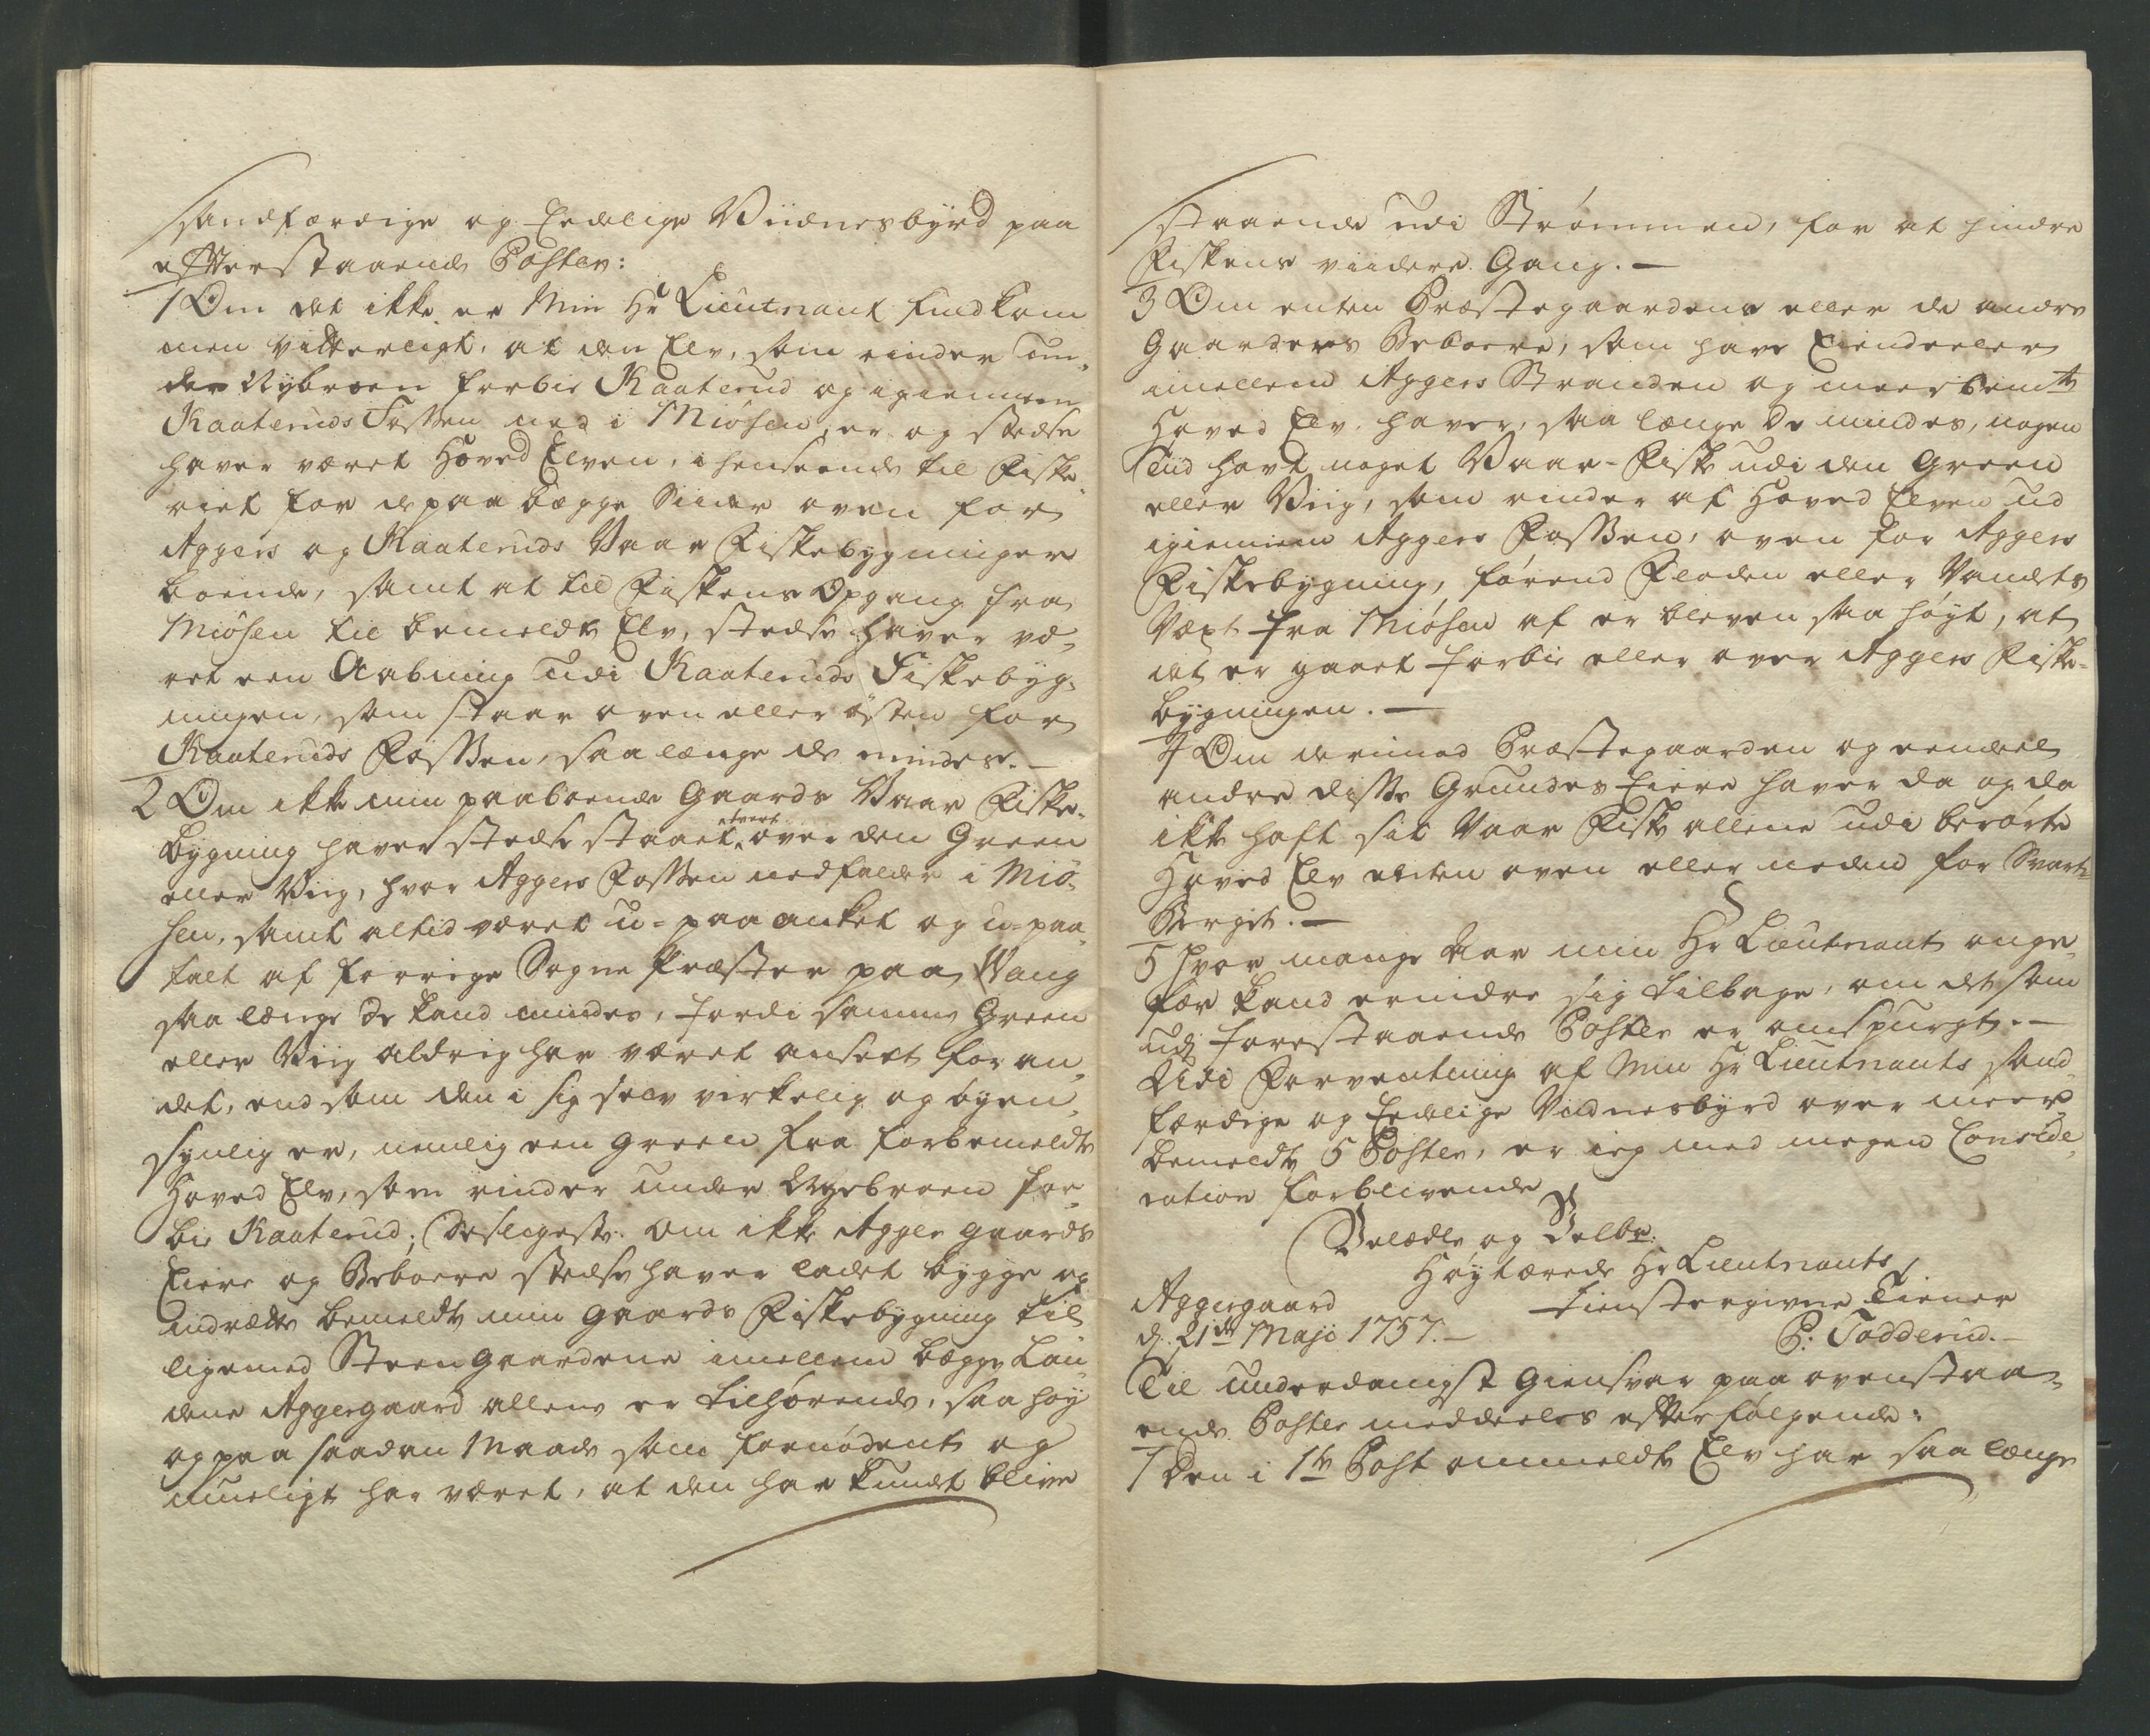 sandfærdige og Eedelige Viidnesbyrd paa
efterstaaende Poster:
1 Om det ikke er Min Hr Lieutnant fuldkom
men vitterligt, at den Elv, som rinder un-
der Nybroen forbie Kaaterud og igiennem
Kaateruds Fossen ned i Miøsen, er og stedse
haver været Hoved Elven, i henseende til Fiske-
riet for de paa begge Siider oven for
Aggers og Kaateruds Vaar Fiskebygninger
boende, samt at til Fiskens Opgang fra
Miøsen til bemeldte Elv, stedse haver væ-
ret een Aabning udi Kaateruds Fiskebyg-
ningen, som staar oven eller østen for
Kaateruds Fossen, saa længe de mindes. –
2 Om ikke min paaboende Gaards Vaar Fiske-
bygning haver stedse staaet tvert over den Green
eller Viig, hvor Aggers Fossen nedfalder i Miø-
sen, samt altid været u-paaanket og u-paa-
talt af forrige Sogne Præster paa Wang
saa længe De kand mindes, fordi samme Green
eller Viig aldrig har været anseet for an-
det, end som den i sig selv virkelig og øyen-
synlig er, nemlig een Green fra forbemeldte
Hoved Elv, som rinder under Nyebroen for-
bie Kaaterud; Desligeste: om ikke Agger Gaards
Eiere og Beboere stedse haver ladet bygge og
indrætte bemeldte min Gaards Fiskebygning til
ligemed Steengaardene imellem begge Lan-
dene Aggergaard allene er tilhørende, saa høy
og paa saadan Maade som fornødent og
mueligt har været, at den har kundet blive
staaende udi Strømmen, for at hindre
Fiskens viidere Gang. –
3 Om enten Præstegaardens eller de andre
Gaarders Beboere, som have Eiendeeler
imellem Aggers Stranden og meerbemte
Hoved Elv, haver, saa længe De mindes, nogen
tiid havt noget Vaar-Fiske udi den Green
eller Viig, som rinder af Hoved Elven ud
igiennem Aggers Fossen, oven for Aggers
Fiskebygning, førend Floden eller Vandets
Vext fra Miøsen af er bleven saa høyt, at
det er gaaet forbie eller over Aggers Fiske-
bygningen. –
4 Om derimod Præstegaarden og eendeel
andre disse Grundes Eiere haver da og da
ikke haft sit Vaar Fiske allene udi berørte
Hoved Elv enten oven eller neden for Svarte
Berget. –
5 Hvor mange Aar min Hr Lieutnant onge-
fær kand erindre sig tilbage, om det som
udj forestaaende Poster er omspurgt. –
Udi Forventning af Min Hr Lieutnants sand-
færdige og Eedelige Vidnesbyrd over meer-
bemeldte 5 Poster, er ieg med megen Conside-
ration forblivende
Velædle og Velbr:
Høytærede Hr Lieutnants
Aggergaard
tienstergivne Tiener
d. 21de Maji 1757. –
P: Todderud. –
Til underdanigst Giensvar paa ovenstaa-
ende Poster meddeeles efterfølgende:
1 Den i 1te Post ommeldte Elv har saa længe